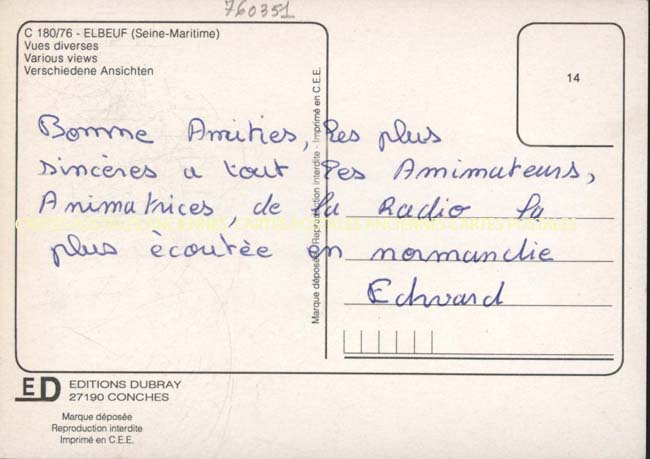 760351
C 180/76 - ELBEUF (Seine-Maritime)
Vues diverses
Various views
Verschiedene Ansichten
14
Bonne Amities, les plus
sincères a tout les Amimateurs,
Animatrices, de la Radio la
plus écoutée en normandie
Edward
Marque déposée - Reproduction interdite - Imprimé en C.E.E.
CARTES POSTALES ANCIENNES CARTES POSTALES
ED EDITIONS DUBRAY
27190 CONCHES
Marque déposée
Reproduction interdite
Imprimé en C.E.E.